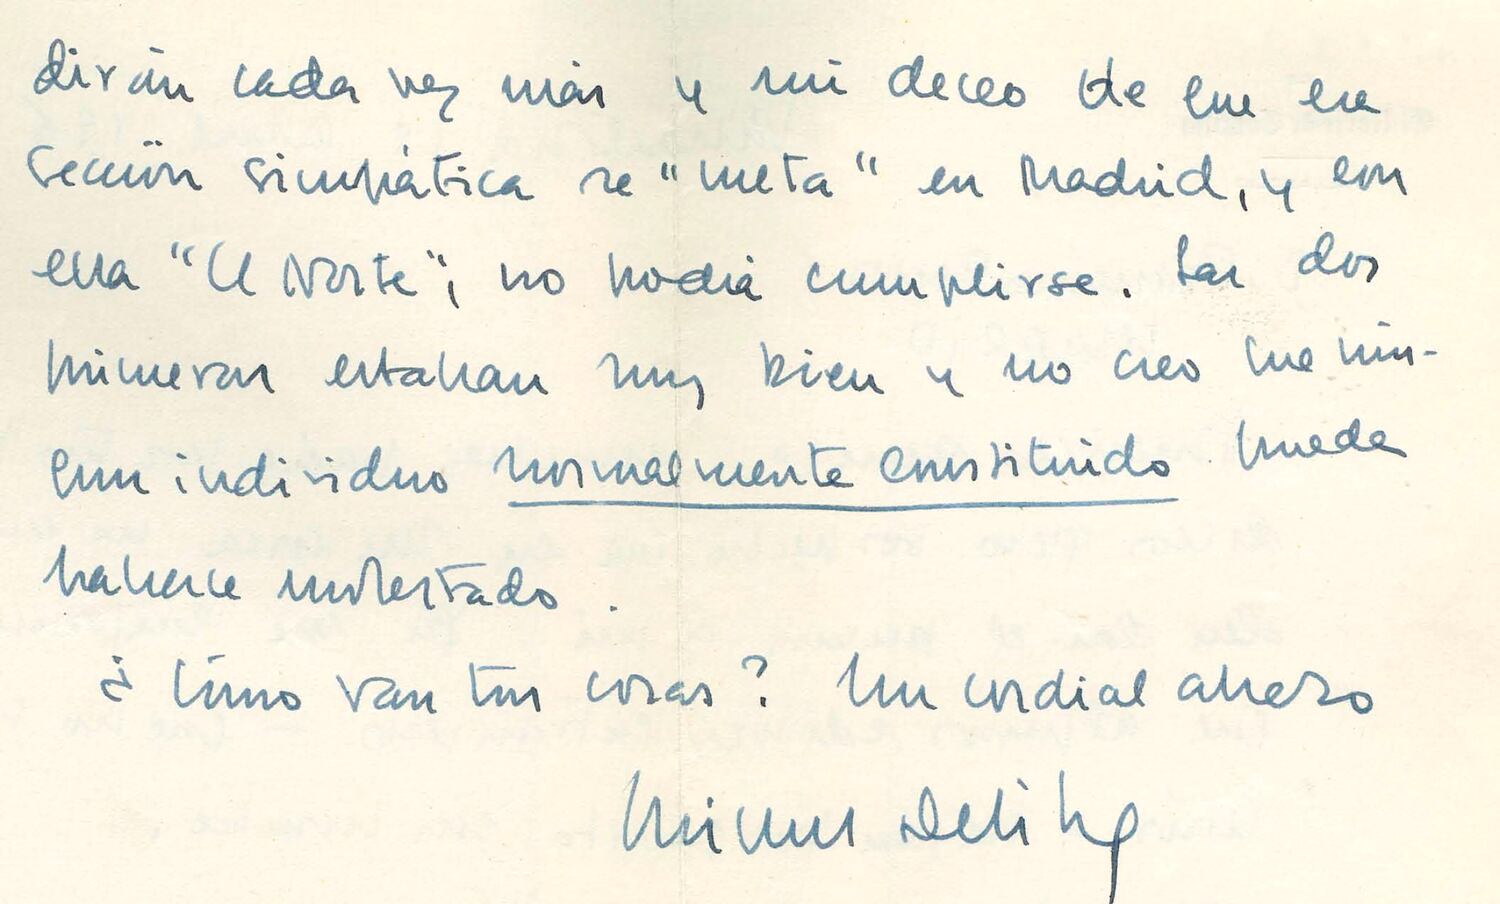 dirán cada vez más y mi deceo de que esa
sección simpática se "meta" en Madrid, y con
ella "El Norte", no podía cumplirse. Las dos
primeras estaban muy bien y no creo que nin-
gun individuo normalmente constituido pueda
haberse molestado.
¿Cómo van tus cosas? Un cordial abrazo
Miguel Delibes